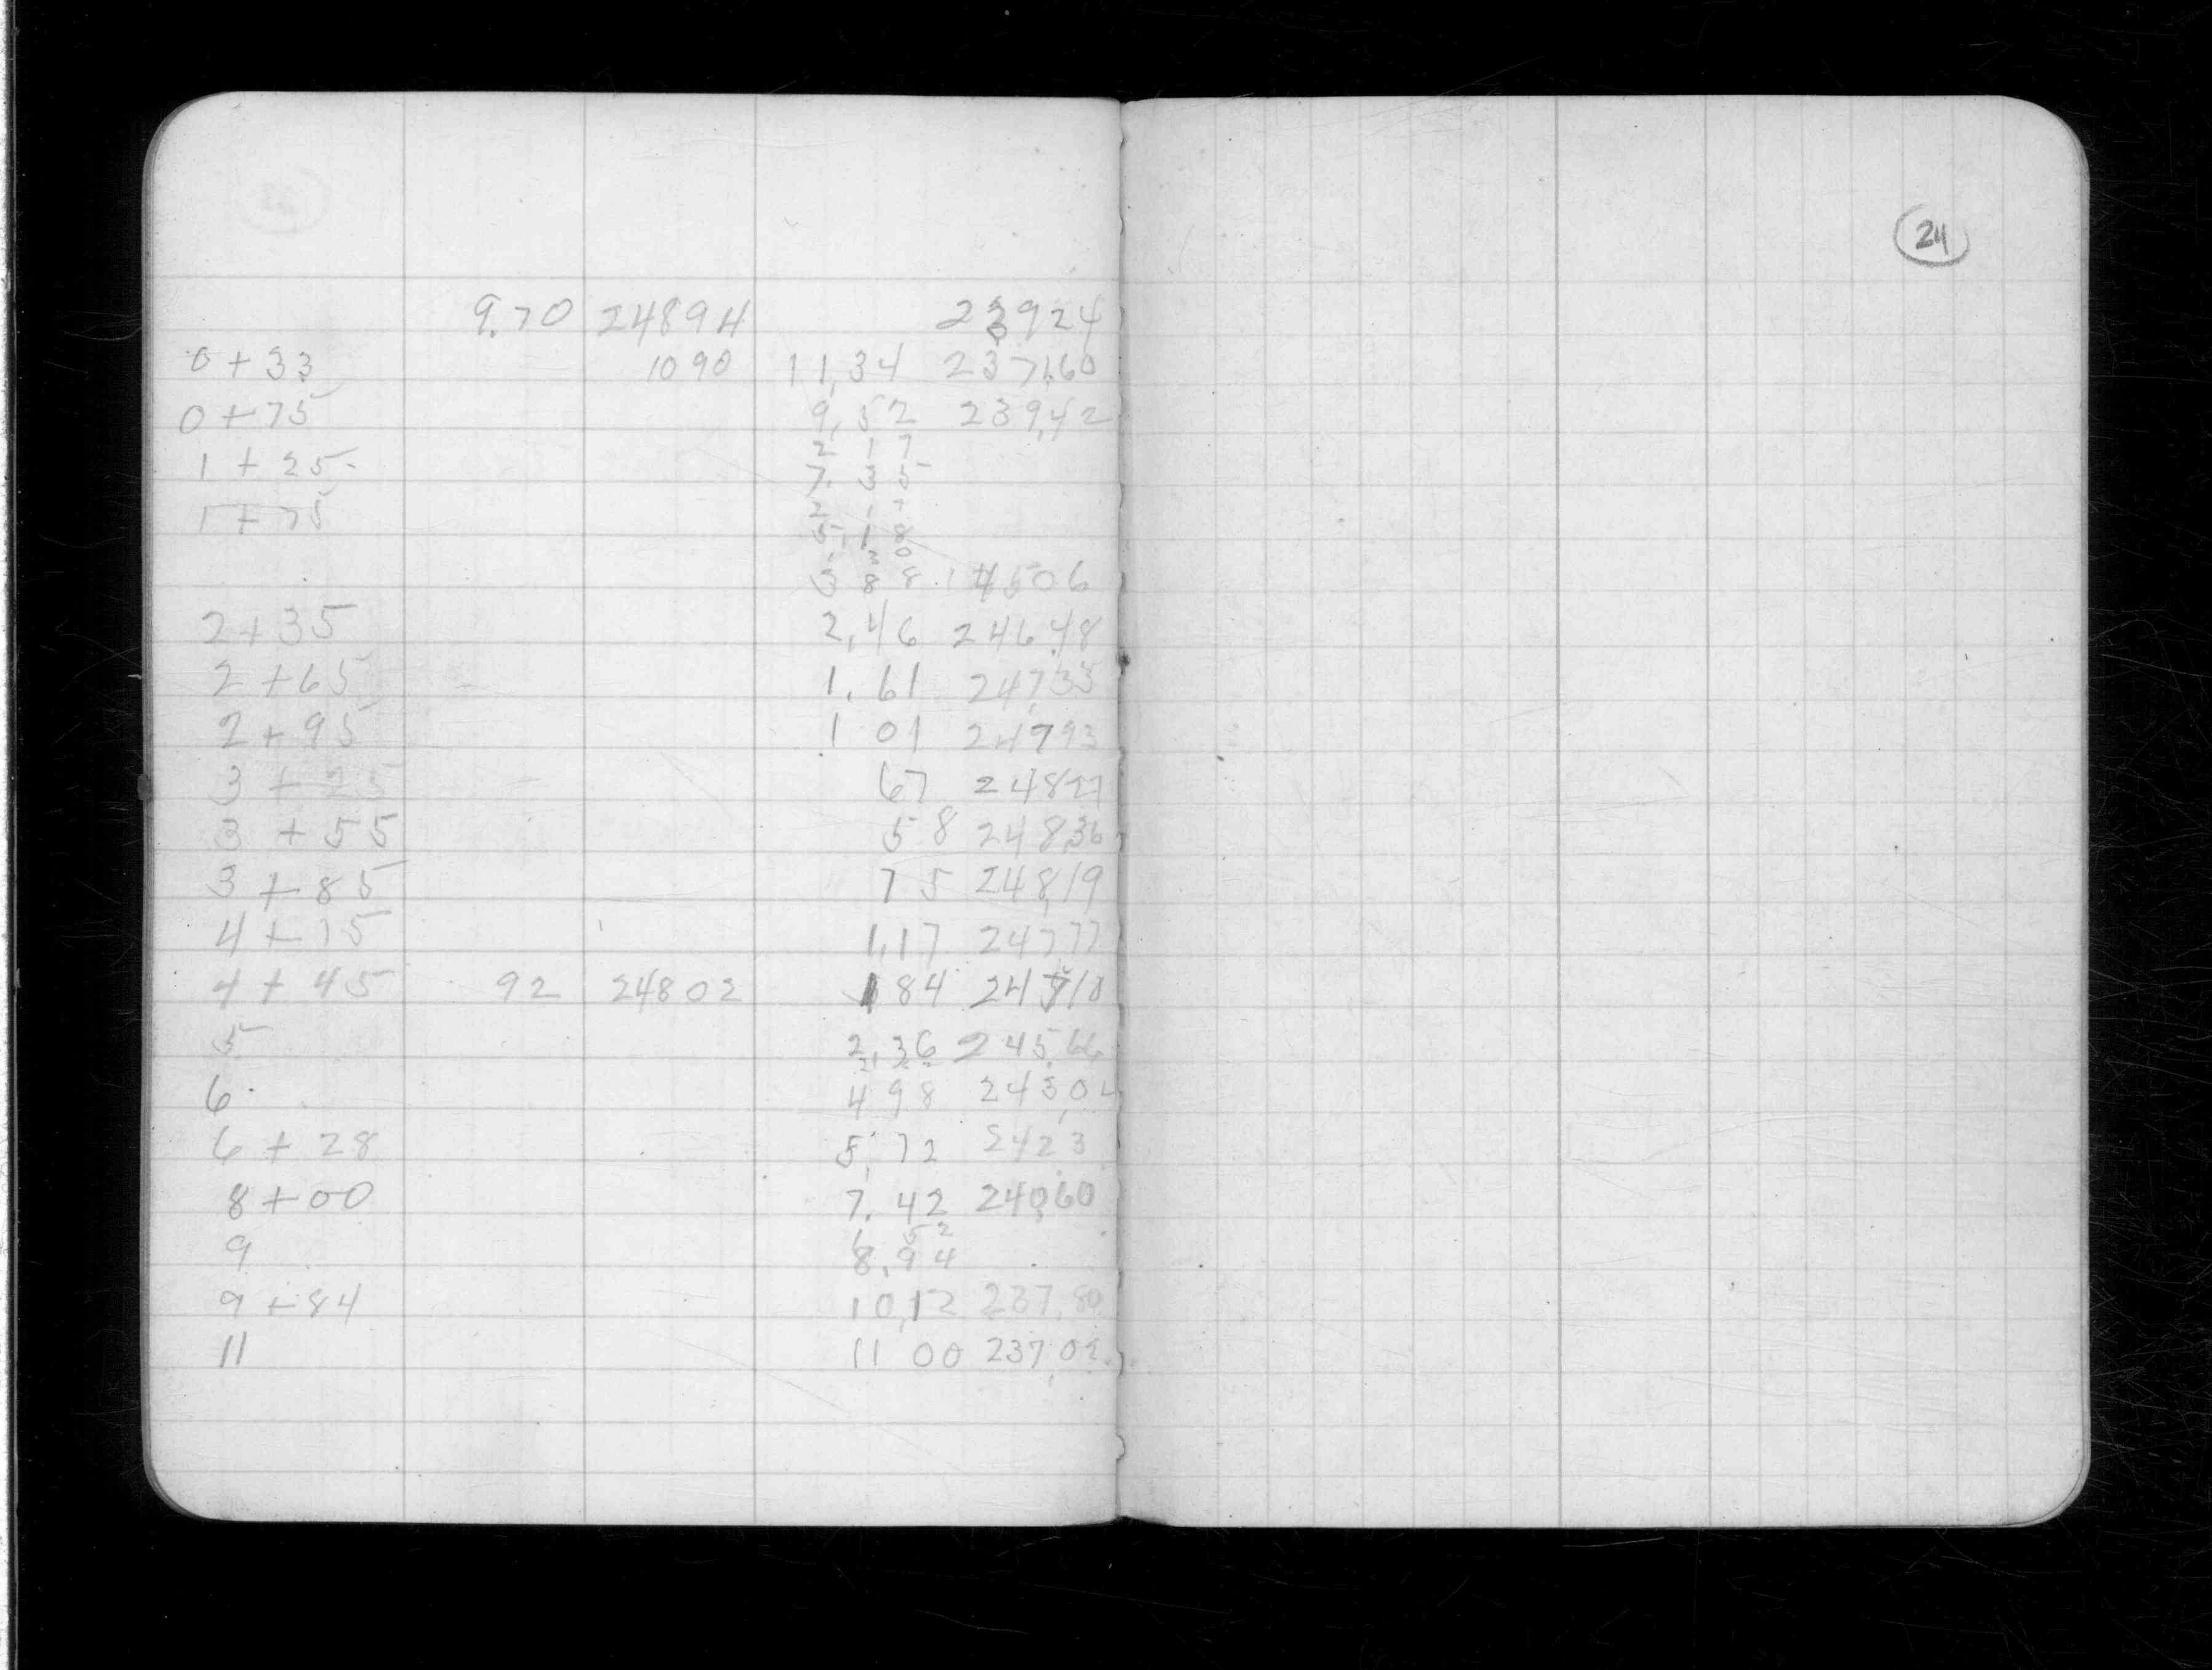 24
9.70 24894 23924
0+33 1090 11,34 237,60
0+75 9,52 239,42
2 17
1+25 7.35
2 17
1+75 5,18
1 30
3 88 4506
2+35 2,46 246.48
2+65 1.61 247,33
2+95 1 01 24793
3+25 67 24827
3+55 58 248,36
3+85 75 248,19
4+15 1,17 24777
4+45 92 24802 184 24718
5 2,36 245,66
6 498 243,04
6+28 5,72 2423
8+00 7.42 240,60
1 52
9 8,94
9+84 10,12 237,80
11 11 00 237,02